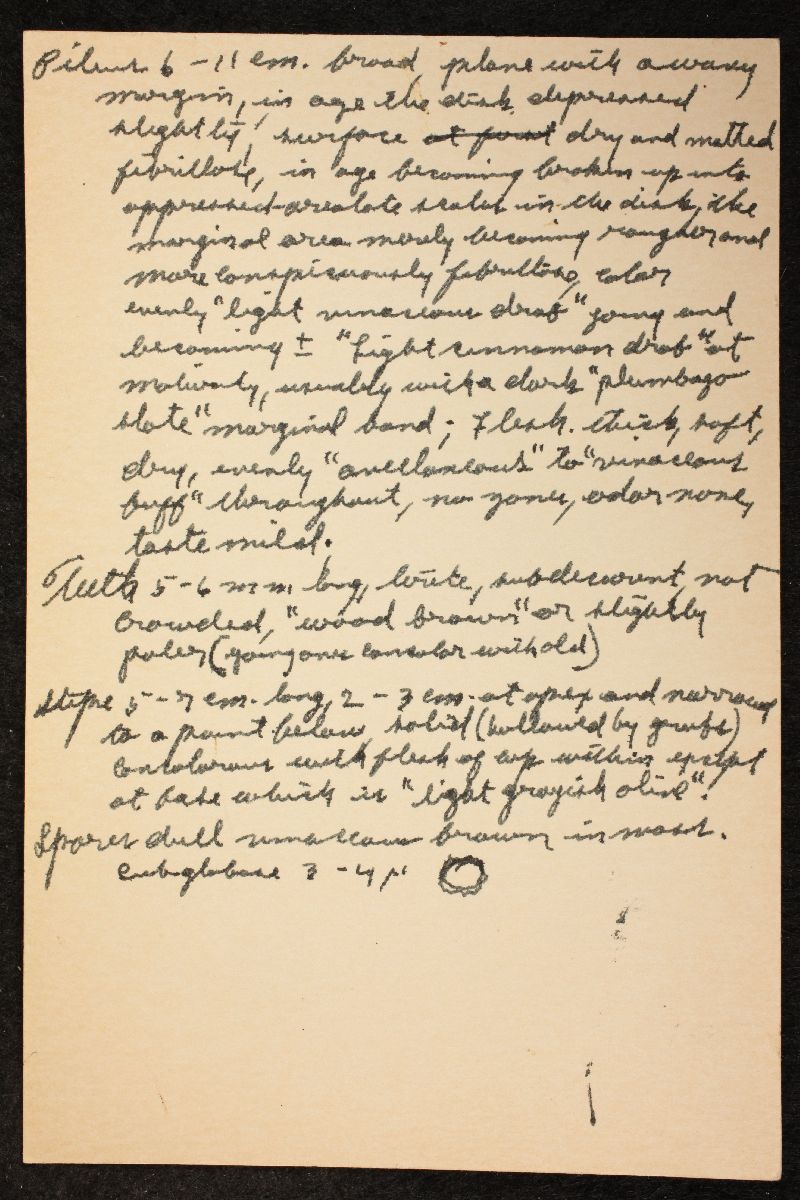 Pileus 6 - 11 cm. broad, plane with a wavy
margin, in age the disk depressed
slightly, surface at first dry and matted
fibrillose, in age becoming broken up into
appressed-areolate scales in the disk, the
marginal area merely becoming rougher and
more conspicuously fibrillose, color
evenly "light vinaceous drab" young and
becoming ± "light cinnamon drab" at
maturity, usually with a dark "plumbago
slate" marginal band; Flesh. thick, soft,
dry, evenly "avellaneous" to "vinaceous
buff" throughout, no zones, odor none,
taste mild.
Teeth 5-6 mm long, brittle, subdecurrent, not
crowded, "wood brown" or slightly
paler (young ones concolor with old)
Stipe 5 - 7 cm. long, 2 - 3 cm. at apex and narrowed
to a point below, solid (hollowed by grubs)
concolorous with flesh of cap within except
at base which is "light grayish olive".
Spores dull vinaceous brown in mass.
subglobose 3 - 4 µ